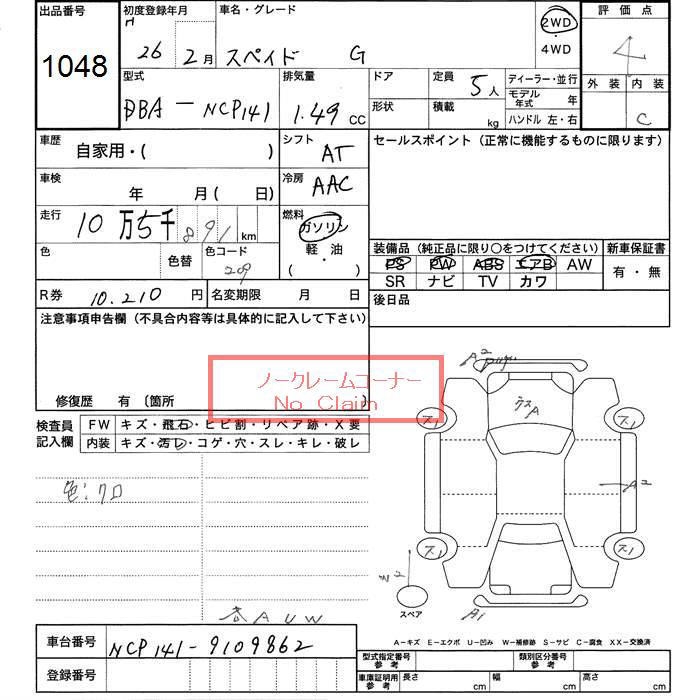 出品番号
1048
初度登録年月
H 26 2月
車名・グレード
スペイド G
2WD
4WD
評価点
4
外装 内装
C
型式
DBA-NCP141
排気量
1.49 CC
ドア
形状
定員 5人
積載 kg
ディーラー・並行
モデル年式 年
ハンドル 左・右
車歴
自家用・( )
シフト
AT
セールスポイント (正常に機能するものに限ります)
車検
年 月( 日)
冷房
AAC
走行
10万5千891km
燃料
ガソリン
軽・油
( )
色
色替
色コード
209
装備品 (純正品に限り○をつけてください)
新車保証書
PS PW ABS エアB AW
SR ナビ TV カワ
有・無
R券 10.210円
名変期限 月 日
後日品
注意事項申告欄 (不具合内容等は具体的に記入して下さい)
ノークレームコーナー
No Claim
修復歴 有 〔箇所
検査員
記入欄
FW キズ・飛石・ヒビ割・リペア跡・X要
内装 キズ・汚レ・コゲ・穴・スレ・キレ・破レ
色:クロ
A2
A
ス1
ス1
A2
ス1
ス1
スペア
A1
AUW
A-キズ E-エクボ U-凹み W-補修跡 S-サビ C-腐食 XX-交換済
車台番号 NCP141-9109862
登録番号
型式指定番号
参考
類別区分番号
参考
車庫証明用
参考
長さ cm
幅 cm
高さ cm